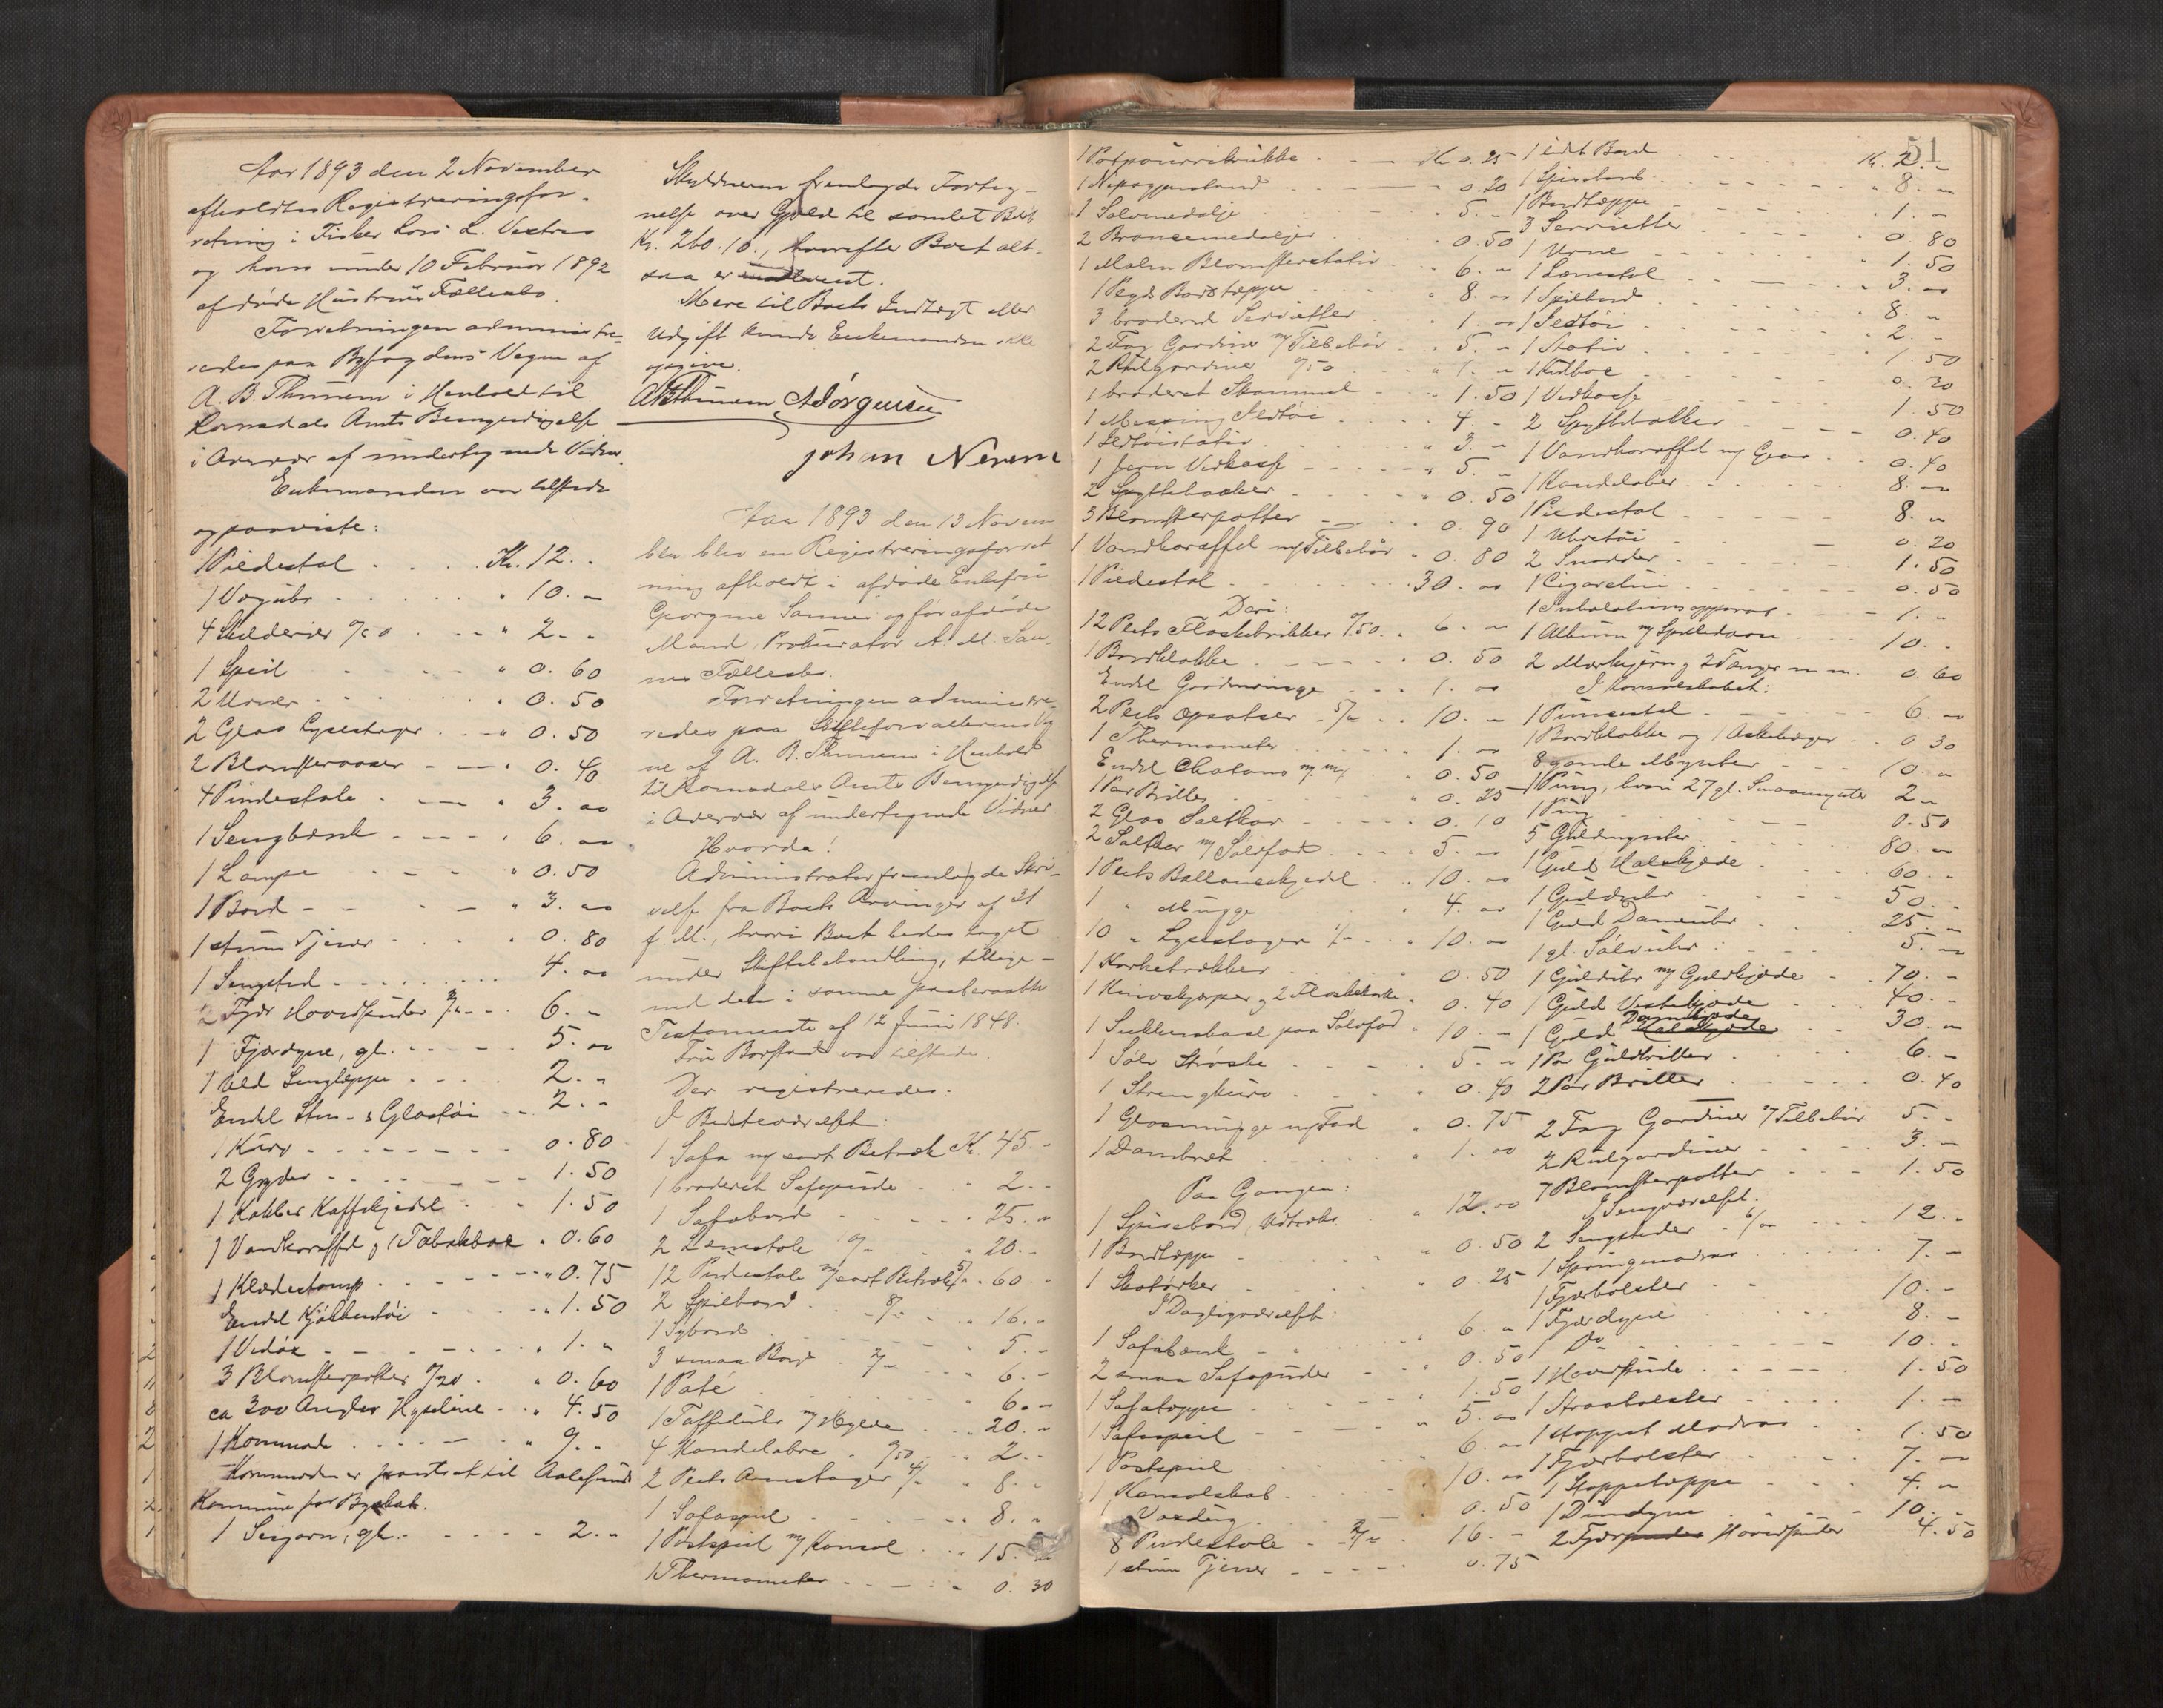 Aar 1893 den 2 November
afholdtes Registreringsfor-
retning i Fisker Lars L. Vestres
og hans under 10 Februar 1892
afdøde Hustrues Fællesbo.
Forretningen administre-
redes paa Byfogdens Vegne af
A. B. Thunem i Henhold til
Romsdals Amts Bemyndigelse
i Overvær af undertegnede Vidner.
Enkemanden var tilstede
og paaviste:
1 Piedestal . . . . Kr. 12. "
1 Vægubr . . . . " 10. "
4 Skilderier . . " 2. "
1 Speil . . . " 0. 60
2 Urner . . . " 0. 50
2 Glas Lysestager . . " 0. 50
2 Blomstervaser . . " 0. 40
4 Pindestole . . " 3. "
1 Sengbænk . . . " 6. "
1 Lampe . . . " 0. 50
1 Bord . . . " 3. "
1 stum Tjener . . " 0. 80
1 Sengsted . . . . 4. "
2 Fjær Hovedpuder . . 6. "
1 Fjærdyne, gl. . . . 5. "
1 Uld Sengteppe . . . 2. "
Endel Sten- & Glastøi . . 2. "
1 Kurv . . . . 0. 80
2 Gryder . . . . 1. 50
1 Kobber Kaffekjedel . . 1. 50
1 Vandkaraffel og 1 Tobaksboks " 0. 60
1 Klædestamp . . . " 0. 75
Endel Kjøkkentøi . . " 1. 50
1 Vedøx . . . . " 1. "
3 Blomsterpotter 0/20 . " 0. 60
ca 300 Angler Hyseline . . " 4. 50
1 Kommode . . . . " 9. "
Kommoden er pantsat til Aalesunds
Kommune for Byskat.
1 Seigarn, gl. . . . . 2. "
Skyldneren fremlagde Forteg-
nelse over Gjæld til samlet Beløb
Kr. 260. 10., hvorefter Boet alt-
saa er insolvent.
Mere til Boets Indtægt eller
Udgift kunde Enkemanden ikke
opgive.
ABThunem A Jørgensen
Johan Neren
Aar 1893 den 13 Novem
ber blev en Registreringsforret
ning afholdt i afdøde Enkefru
Georgine Sannes og før afdøde
Mand, Prokurator A. M. San-
nes Fællesbo.
Forretningen administre-
redes paa Skifteforvalterens Veg
ne af A. B. Thunem i Henhold
til Romsdals Amts Bemyndigelse
i Overvær af undertegnede Vidner
Hvorda!
Administrator fremlagde Skri-
velse fra Boets Arvinger af 31
f. M., hvori Boet bedes taget
under Skiftebehandling, tillige-
med den i samme paaberaabte
Testamente af 12 Juni 1848.
Fru Borstad var tilstede.
Der registreredes:
I Bedsteværelset:
1 Sofa m/ sort Betræk Kr. 45. "
1 broderet Sofapude . . 2. "
1 Sofabord . . . . 25. "
2 Lænestole . . . 20. "
12 Pindestole m/ sort Betræk 5/" . 60. "
2 Spilbord . . 8/" . " 16. "
1 Sybord . . . . 5. "
3 smaa Bord . 2/" . . 6. "
1 Paté . . . . 6. "
1 Taffelubr m/ Hylde . . 20. "
4 Kandelabre . 0/50 . . 2. "
2 Plets Armstager 4/" . . 8. "
1 Sofaspeil . . . . 8. "
1 Postspeil m/ Konsol . . 15. "
1 Thermometer . . . . 0. 30
51
1 Potpourrikrukke . . . Kr. 0. 25
. . . 0. 20
1 Sølvmedalje . . . " 5. "
2 Broncemedaljer . . . " 0. 50
1 Malm Blomsterstativ . . " 6. "
1 Bordtæppe . . . " 8. "
3 broderede Servietter . . " 1. "
2 Fag Gardiner m/ Tilbehør . . 5. "
2 Rulgardiner 0/50 . . " 1. "
1 broderet Skammel . . " 1. 50
1 Messing Ildtøi . . . 4. "
1 Ildtøistativ . . . " 3. "
1 Jern Vedkasse . . . " 5. "
2 Spyttebakker . . . " 0. 50
3 Blomsterpotter . . . " 0. 90
1 Vandkaraffel m/ Tilbehør " 0. 80
1 Piedestal . . . . 30. "
Deri:
12 Plets Flaskebrikker 0/50 . " 6. "
1 Bordklokke . . . . " 0. 50
Endel Gardinringe . . . 1. "
2 Plets Opsatser . 5/" . . 10. "
1 Thermometer . . . . 1. "
Endel m. m. . " 0. 50
1 Par Briller . . . " 0. 25
2 Glas Saltkar . . . 0. 10
2 Saltkar m/ Sølvfod . . . 5. "
1 Plets Ballonskjedel . . 10. "
1 " Mugge . . . " 4. "
10 " Lysestager 1/" . . 10. "
1 Korketrækker . . . 0. 50
1 Knivskjærper og 2 . 0. 40
1 Sukkerskaal paa Sølvfod " 10. "
1 Sølv Strøske . . . . 5. "
1 . . . " 0. 40
1 Glasmugge m/ Fad " 0. 75
1 Dambret . . . " 1. "
Paa Gangen:
1 Spisebord, Udtræks . " 12. "
1 Bordtæppe . . . " 0. 50
1 Skotørker . . . . " 0. 25
I Dagligværelset:
1 Sofabænk . . . . " 6. "
2 smaa Sofapuder . . . 0. 50
1 Sofateppe . . . . 1. 50
1 Sofaspeil . . . . " 5. "
1 Postspeil . . . . 6. "
1 Konsolskab . . . . 10. "
1 Voxdug . . . . " 0. 50
8 Pindestole . . 2/" . . 16. "
1 stum Tjener . . . . 0. 75
1 lidet Bord . . . . Kr. 2. "
1 Spisebord . . . . . " 8. "
1 Bordtæppe . . . . . " 1. "
3 Servietter . . . . . 0. 80
1 Urne . . . . . " 1. 50
1 Lænestol . . . . . " 3. "
1 Spilbord . . . . . 8. "
1 Ildtøi . . . . . 2. "
1 Stativ . . . . . 1. 50
1 . . . . . 0. 20
1 Vedkasse . . . . . 1. 50
2 Spyttebakker . . . . 0. 40
1 Vandkaraffel m/ Glas . . 0. 40
1 Kandelaber . . . . . 8. "
1 Piedestal . . . . . 8. "
1 Uhrstøi . . . . . 0. 20
2 . . . . . 1. 50
1 Cigaretui . . . . . 0. 50
1 Inhalationsapparat . . . 1. "
1 Album m/ Spilledaase . . 10. "
2 Mærkejern og 2 Tænger m. m. 0. 60
I Konsolskabet:
1 . . . . 6. "
1 Bordklokke og 1 Askebæger . . 0. 30
8 gamle Mynter . . . 10. "
1 Pung, hvori 27 gl. Smaamynter 2. "
1 Pung . . . . . 0. 50
5 Guldmynter . . . . 80. "
1 Guld Halskjæde . . . . 60. "
1 Guldubr . . . . . 50. "
1 Guld Dameubr . . . . 25. "
1 gl. Sølvubr . . . . . 5. "
1 Guldubr m/ Guldkjæde . . 70. "
1 Guld Vestekjæde . . . 40. "
1 Guld Halskjæde Damekjæde . 30. "
1 Par Guldbriller . . . . 6. "
2 Par Briller . . . . 0. 40
2 Fag Gardiner m/ Tilbehør 5. "
2 Rulgardiner . . . . 3. "
7 Blomsterpotter . . . 1. 50
I Sengværelset:
2 Sengsteder . 6/" . . . 12. "
1 Springmadras . . . . 7. "
1 Fjærbolster . . . . 10. "
1 Fjærdyne . . . . 8. "
1 Do . . . . . 10. "
1 Hovedpude . . . . 1. 50
1 Straabolster . . . . 1. "
1 stoppet Madras . . . 1. 50
1 Fjærbolster . . . . 7. "
1 Stoppetæppe . . . . 4. "
1 Dundyne . . . . 10. "
2 Fjærpuder Hovedpuder 4. 50